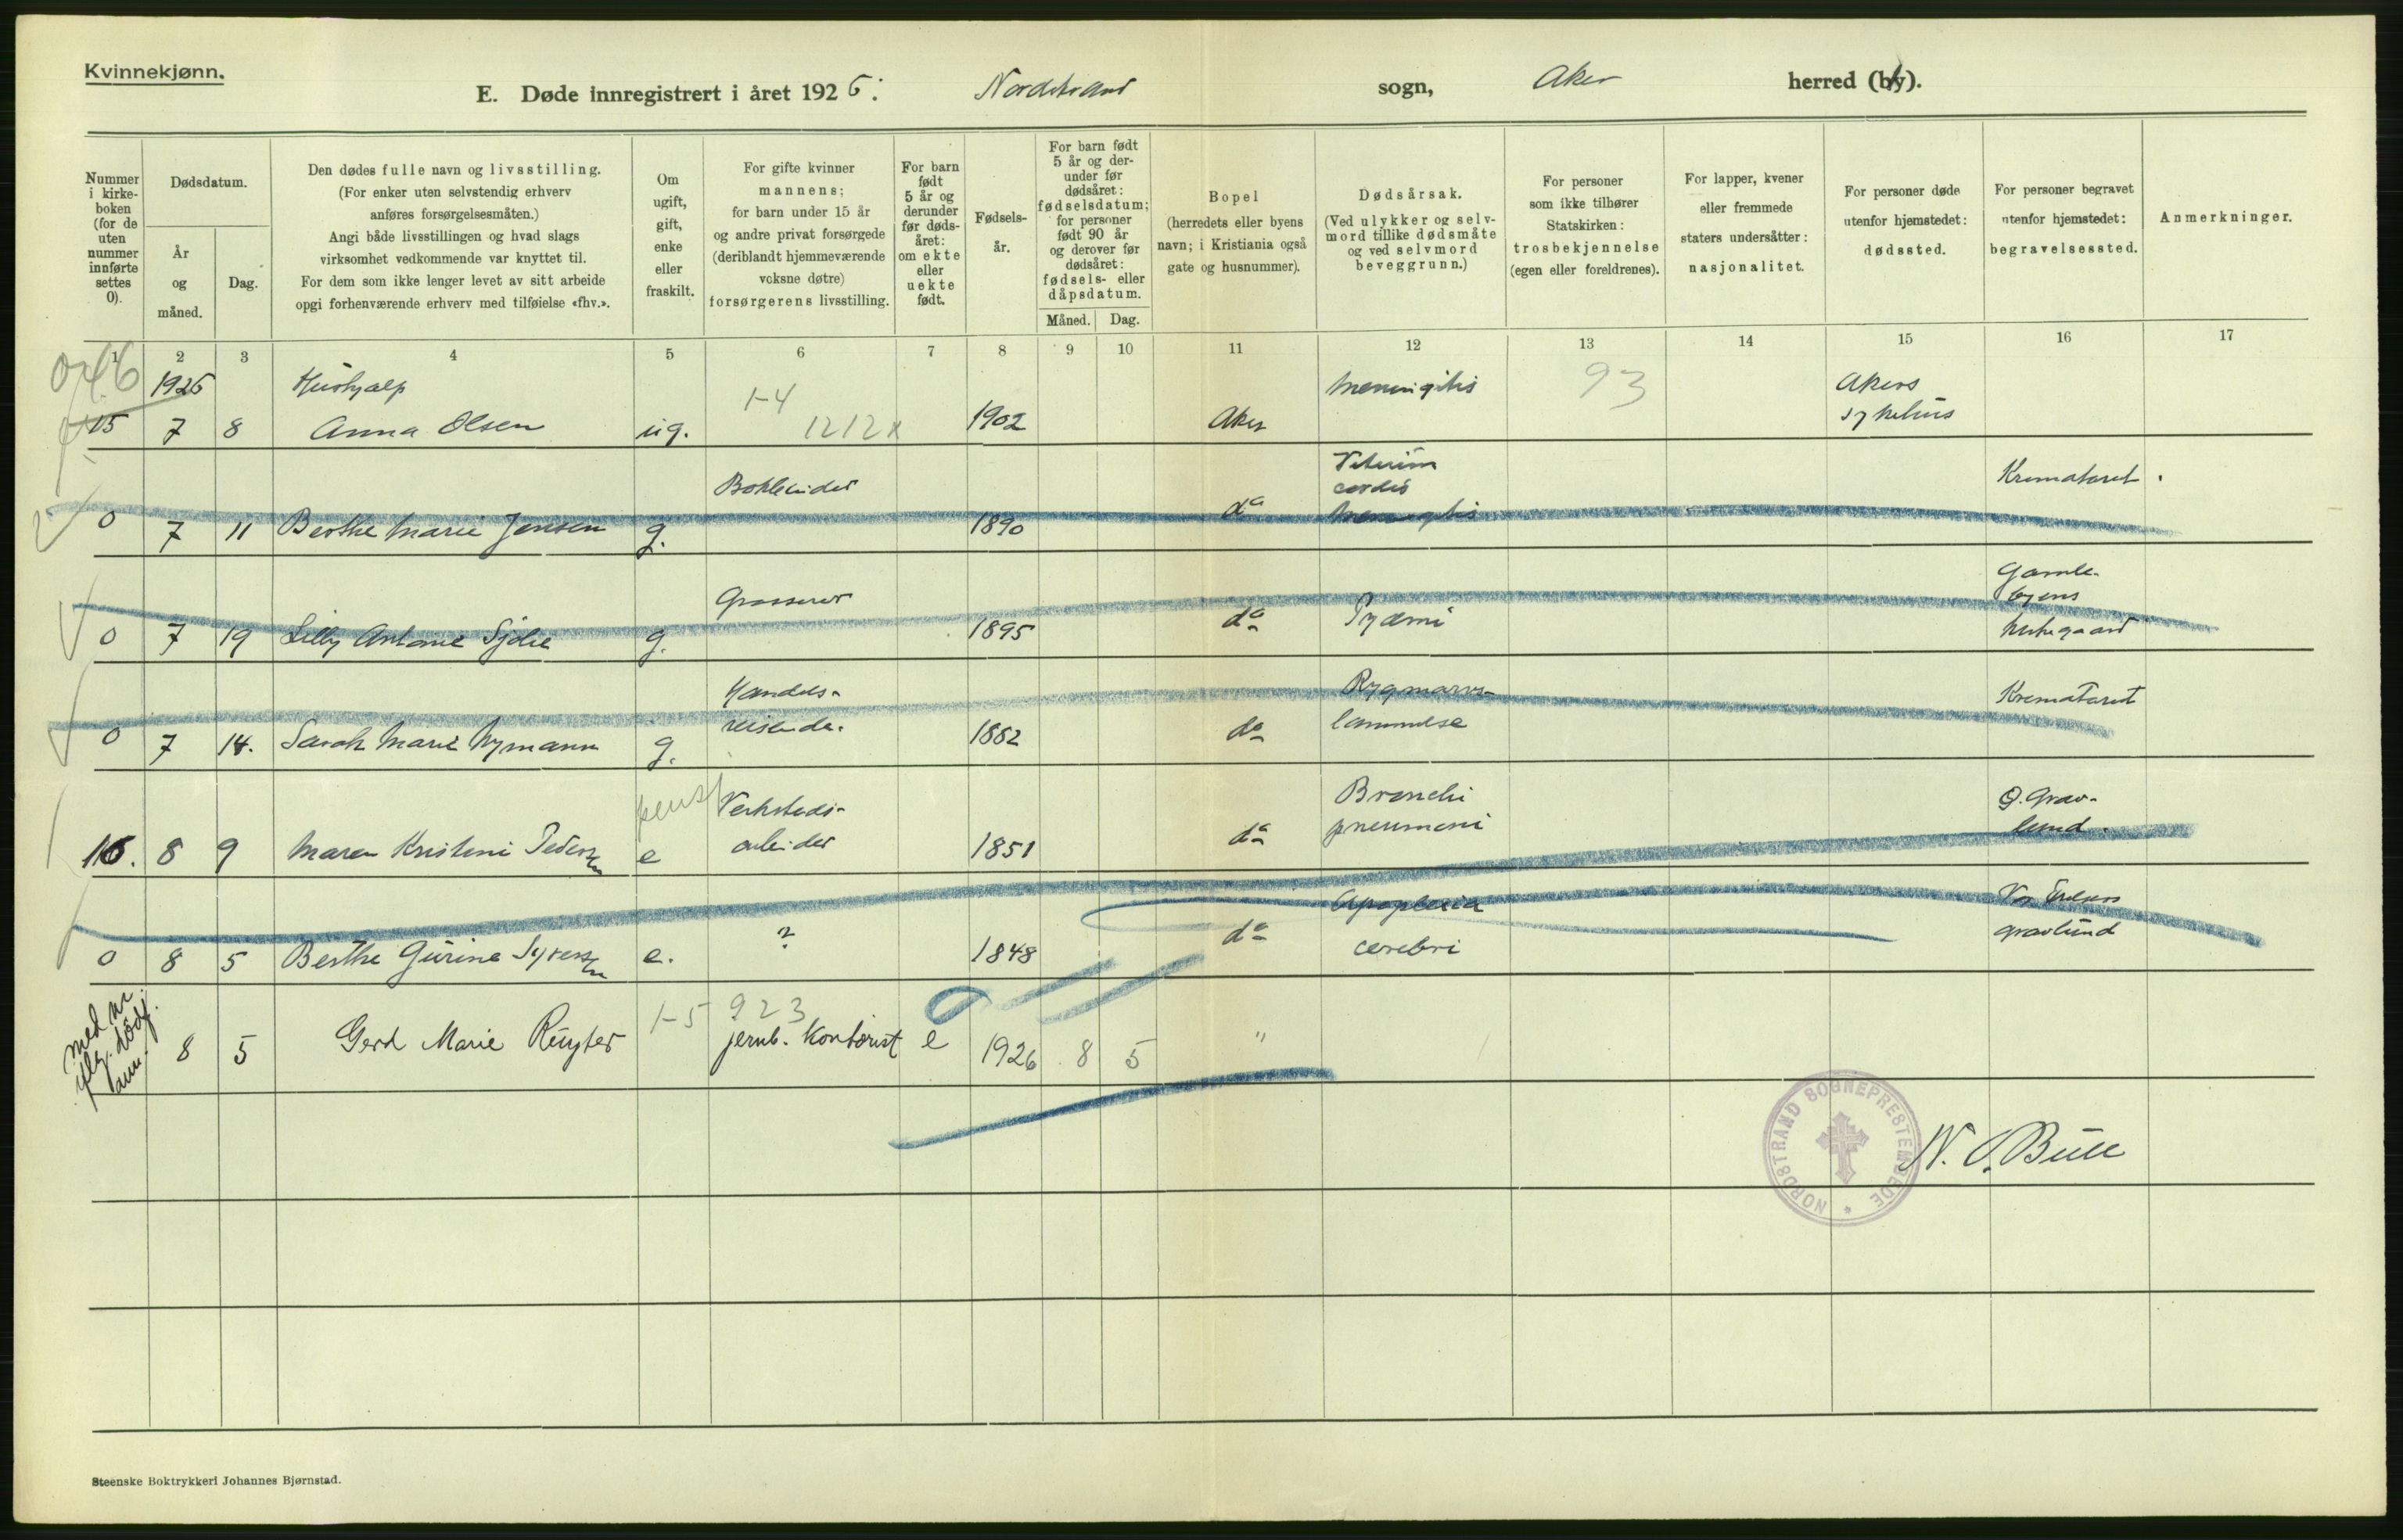 Kvinnekjønn.
E. Døde innregistrert i året 1926. Nordstrand sogn, Aker herred (by).
Nummer i kirkeboken (for de uten nummer innførte settes 0).
Dødsdatum.
År og måned.
Dag.
Den dødes fulle navn og livsstilling.
(For enker uten selvstendig erhverv
anføres forsørgelsesmåten.)
Angi både livsstillingen og hvad slags
virksomhet vedkommende var knyttet til.
For dem som ikke lenger levet av sitt arbeide
opgi forhenværende erhverv med tilføielse «fhv.».
Om ugift, gift, enke eller fraskilt.
For gifte kvinner
mannens;
for barn under 15 år
og andre privat forsørgede
(deriblandt hjemmeværende
voksne døtre)
forsørgerens livsstilling.
For barn født 5 år og derunder før dødsåret: om ekte eller uekte født.
Fødselsår.
For barn født
5 år og derunder før
dødsåret:
fødselsdatum;
for personer
født 90 år
og derover før
dødsåret:
fødsels- eller
dåpsdatum.
Måned. Dag.
Bopel
(herredets eller byens
navn; i Kristiania også
gate og husnummer).
Dødsårsak.
(Ved ulykker og selvmord tillike dødsmåte
og ved selvmord
beveggrunn.)
For personer
som ikke tilhører
Statskirken:
trosbekjennelse
(egen eller foreldrenes).
For lapper, kvener
eller fremmede
staters undersåtter:
nasjonalitet.
For personer døde
utenfor hjemstedet:
dødssted.
For personer begravet
utenfor hjemstedet:
begravelsessted.
Anmerkninger.
1 2 3 4 5 6 7 8 9 10 11 12 13 14 15 16 17
1926 Hushjælp 1-4 Meningitis 93 Akers
15 7 8 Anna Olsen ug. 1212x 1902 Aker sykehus
Vitium
Bokbinder cordis Krematoriet.
0 7 11 Berthe Marie Jensen g. 1890 do Meningitis
Grosserer Gamle-
byens
0 7 19 Lilly Antonie g. 1895 do Pyæmi kirkegaard
Handels- Rygmarvs- Krematoriet
0 7 14. Sarah Marie Nymann g. reisende. 1882 do lammelse
pens Verksteds- Bronchi Ø. Grav-
16. 8 9 Maren Kristine Pedersen e arbeider 1851 do pneumoni lund.
? Apoplexia Vor Frelsers
0 8 5 Berthe Gurine Syversen e. 1848 do cerebri gravlund
med nr. 1-5 923
8 5 Gerd Marie Ruyter jernb. kontorist e 1926 8 5 "
NORDSTRAND SOGNEPRESTEMBEDE
N. O. Bull
Steenske Boktrykkeri Johannes Bjørnstad.